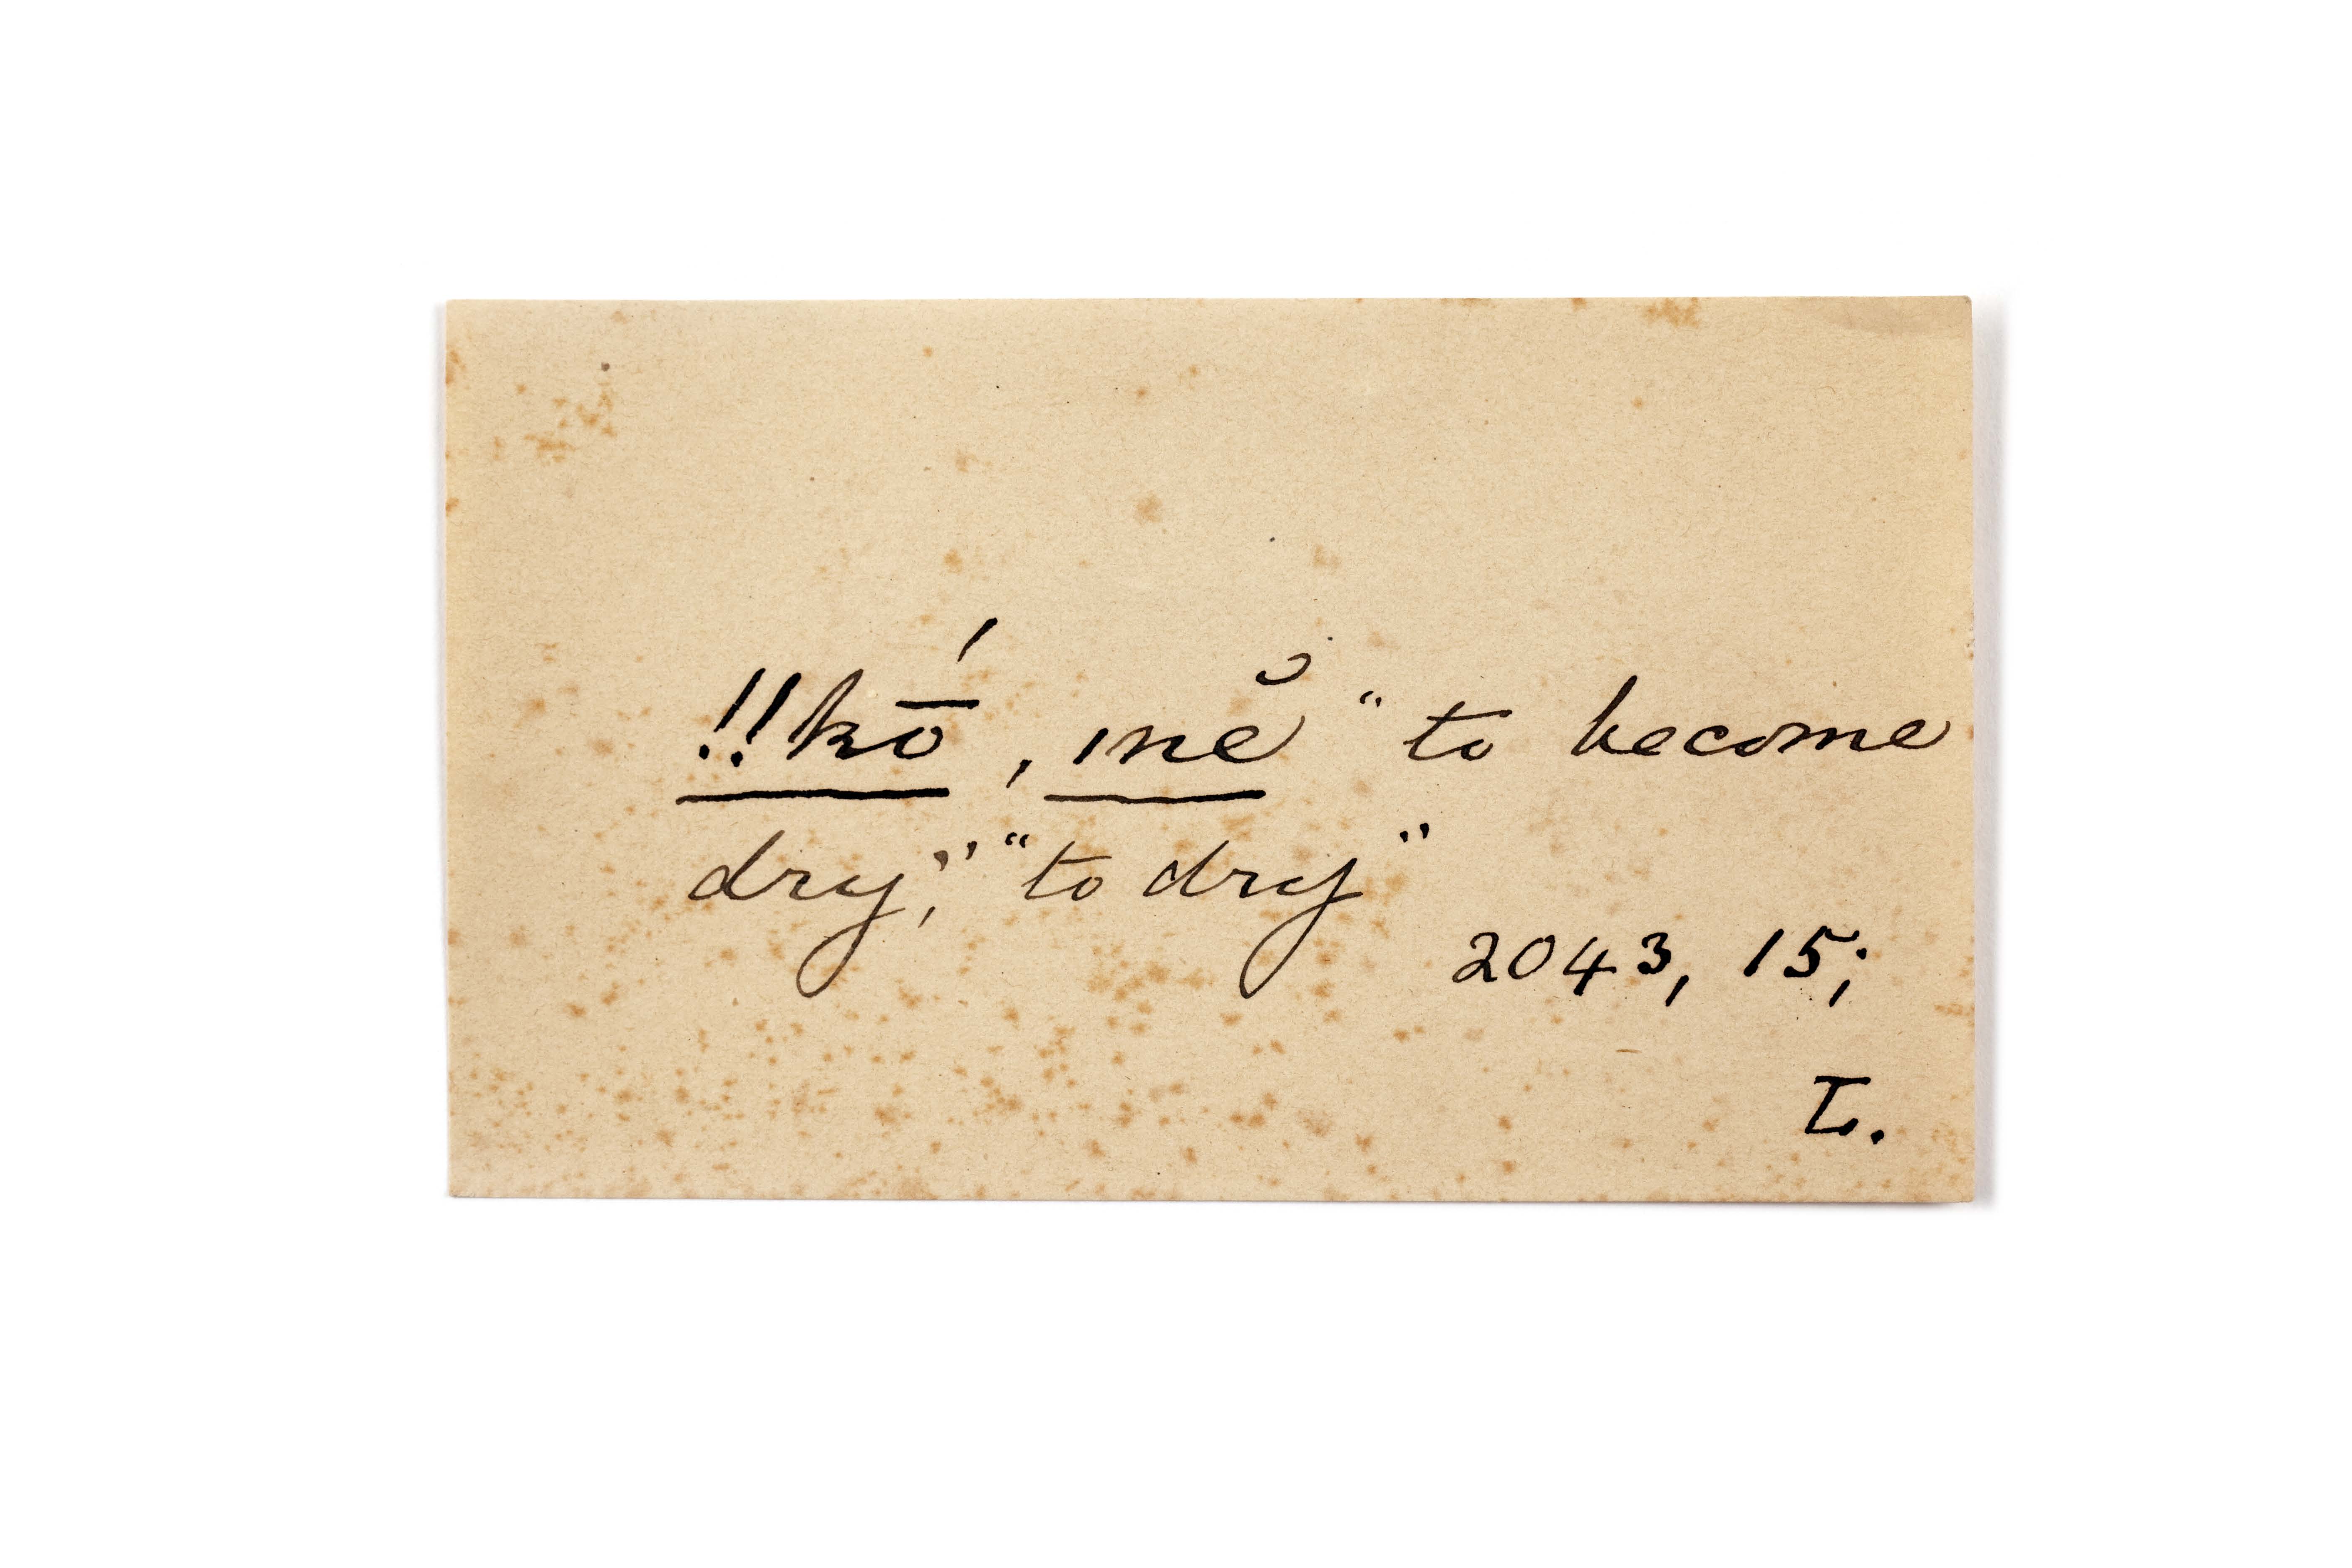 !!kō´, ınĕ “to become
dry,” “to dry”
2043, 15;
L.